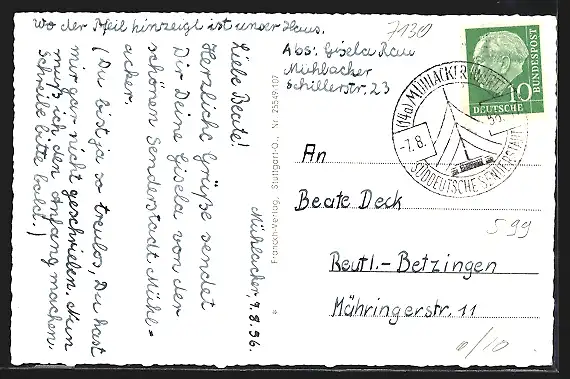 wo der Pfeil hinzeigt ist unser Haus.
7130
Abs: Gisela Rau
Mühlacker
Schillerstr. 23
Mühlacker, 7.8.56.
Liebe Beate!
Herzliche Grüße sendet
Dir Deine Gisela von der
schönen Senderstadt Mühl=
acker.
(Du bist ja so treulos, Du hast
mir gar nicht geschrieben. Nun
muß ich den Anfang machen.
Schreibe bitte bald.)
Stuttgart-O., Nr. 25549/107
(14a) MÜHLACKER
-7.8.
SÜDDEUTSCHE SENDERSTADT
DEUTSCHE BUNDESPOST
10
An
Beate Deck
Reutl.-Betzingen
Mähringerstr. 11
S 99